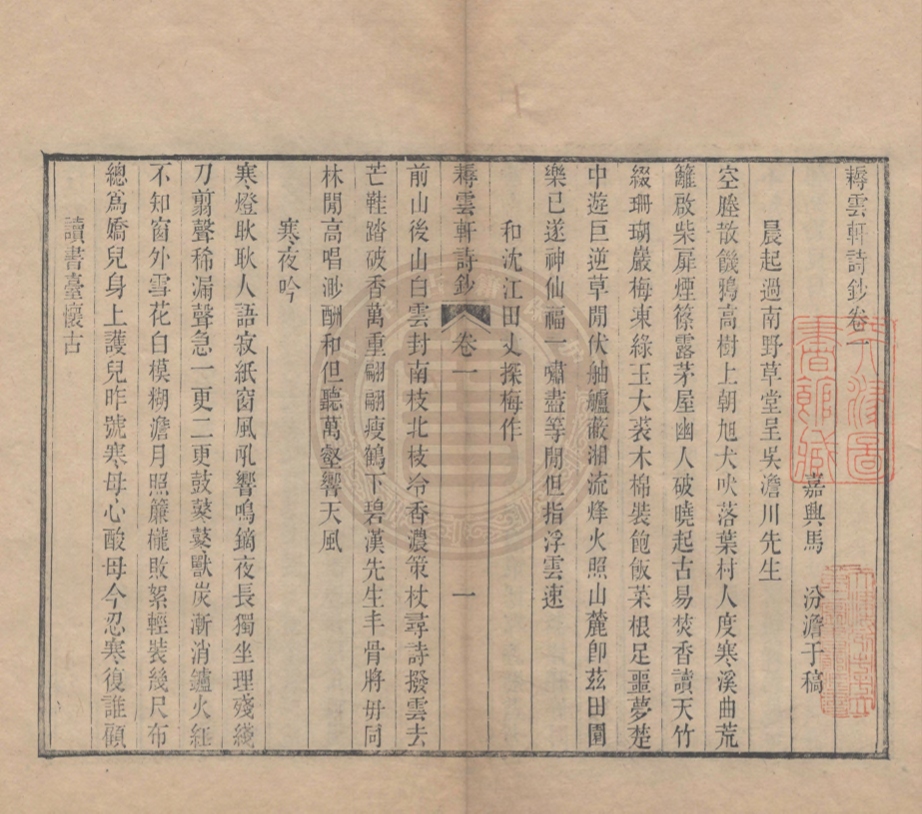 耨雲軒詩鈔卷一
嘉興馬　汾澹于稿
晨起過南野草堂呈吳澹川先生
空塍散饑鴉高樹上朝旭犬吠落葉村人度寒溪曲荒
籬啟柴扉煙篠露茅屋幽人破曉起古易焚香讀天竹
綴珊瑚嚴梅凍綠玉大裘木棉裝飽飯菜根足噩夢楚
中遊巨逆草閒伏舳艫蔽湘流烽火照山麓卽茲田園
樂已遂神仙福一嘯盡等閒但指浮雲速
和沈江田丈探梅作
耨雲軒詩鈔　卷一　一
前山後山白雲封南枝北枝冷香濃策杖尋詩撥雲去
芒鞋踏破香萬重翩翩瘦鶴下碧漢先生丰骨將毋同
林閒高唱渺酬和但聽萬壑響天風
寒夜吟
寒燈耿耿人語寂紙窗風吼響鳴鏑夜長獨坐理殘綫
刀剪聲稀漏聲急一更二更鼓鼕鼕獸炭漸消鑪火紅
不知窗外雪花白模糊澹月照簾櫳敗絮輕裝幾尺布
總爲嬌兒身上護兒昨號寒母心酸母今忍寒復誰顧
讀書臺懷古